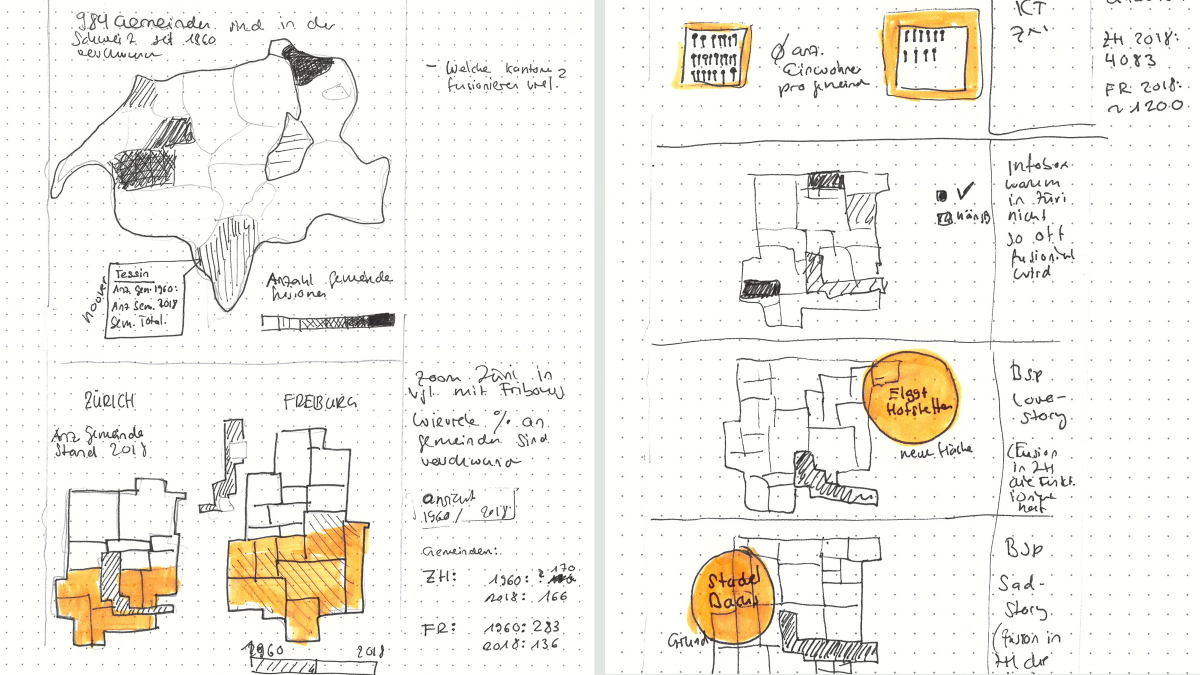 984 Gemeinden sind in der
Schweiz seit 1960
verschwunden
- Welche Kantone
fusionieren viel.
hoover
Tessin
Anz. Gem. 1960:
Anz Gem. 2018
Gem. Total.
Anzahl Gemeinde
fusionen
ZÜRICH
FREIBURG
Anz Gemeinde
Stand 2018
Zoom Züri in
vgl. mit Fribourg
Wieviele % an
gemeinden sind
verschwunden
ansicht
1960 / 2018
Gemeinden:
ZH: 1960: 170
2018: 166
FR: 1960: 283
2018: 136
1960 2018
Ø anz.
Einwohner
pro gemeinde
ICT
ZH 2018:
4083
FR 2018:
~1200
Infobox
warum
in Züri
nicht
so oft
fusioniert
wird
Elgg+
Hofstetten
neue Fläche
Bsp
Love-
story
(Fusion
in ZH
die funkt
ioniert
hat
Stadel
Bachs
Grund
Bsp
Sad-
Story
(fusion in
ZH die